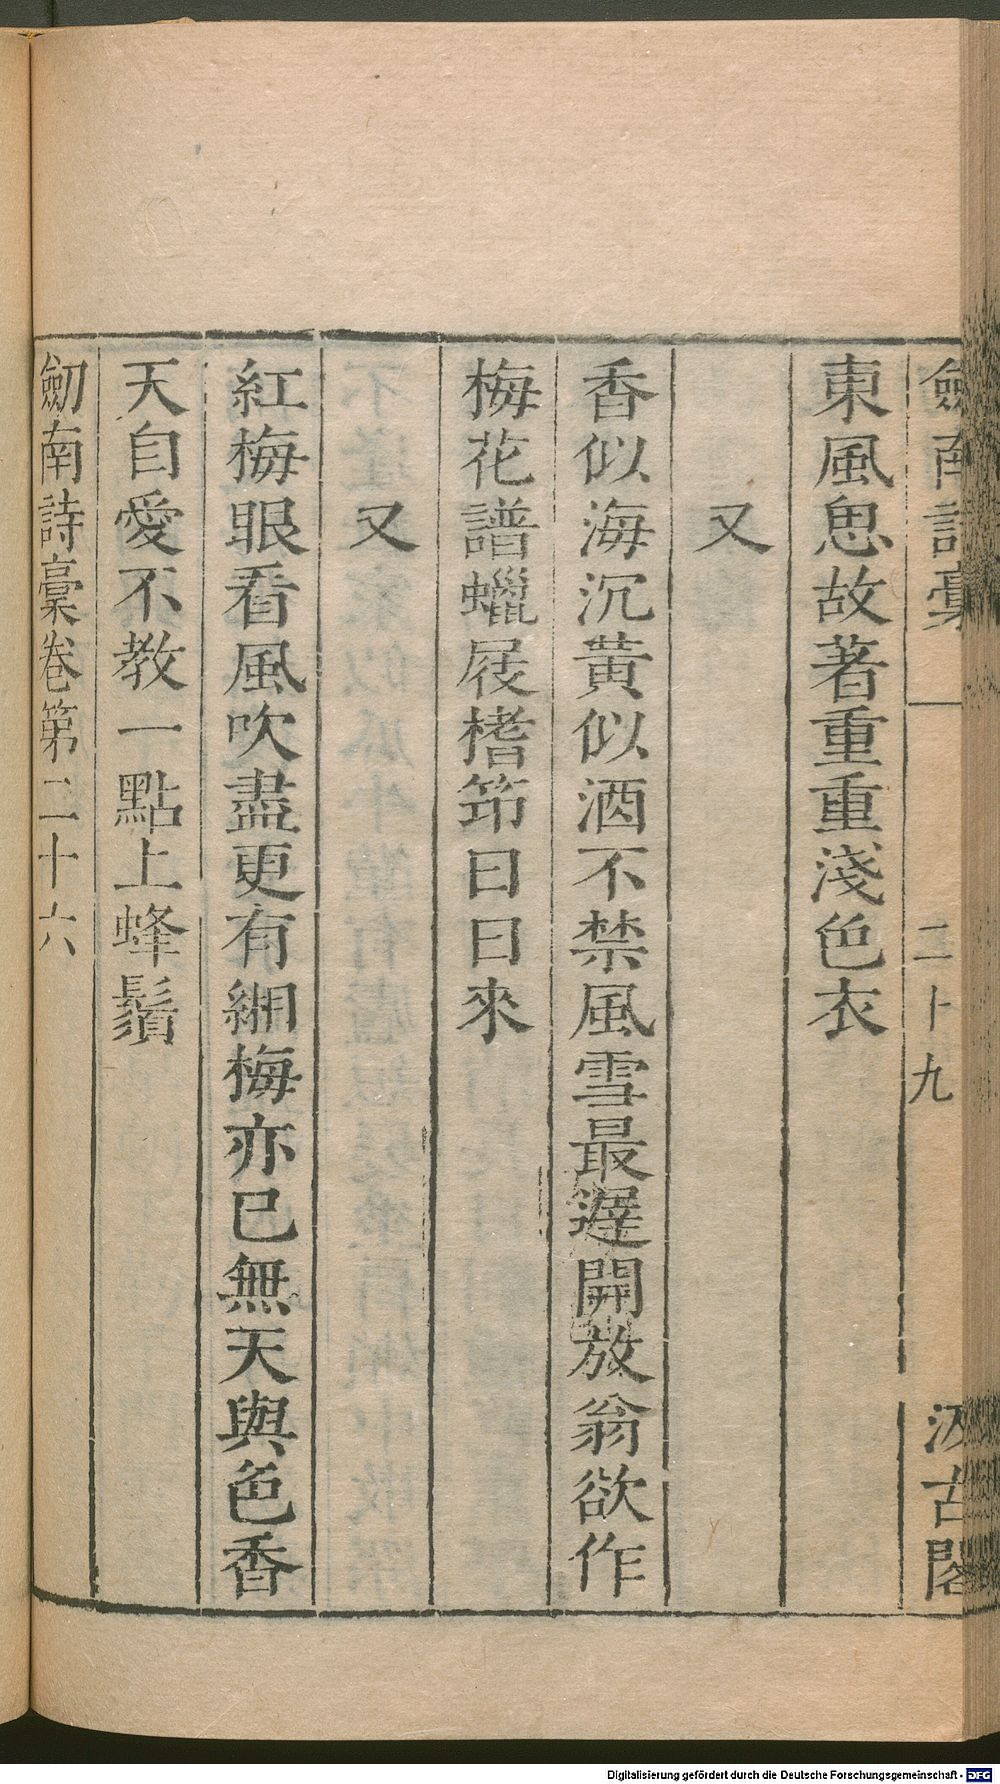 劎南詩稾 二十九 汲古閣
東風思故著重重淺色衣
又
香似海沉黃似酒不禁風雪最遲開放翁欲作
梅花譜蠟屐榰筇日日來
又
紅梅眼看風吹盡更有緗梅亦已無天與色香
天自愛不教一點上蜂鬚
劎南詩稾卷第二十六
Digitalisierung gefördert durch die Deutsche Forschungsgemeinschaft - DFG